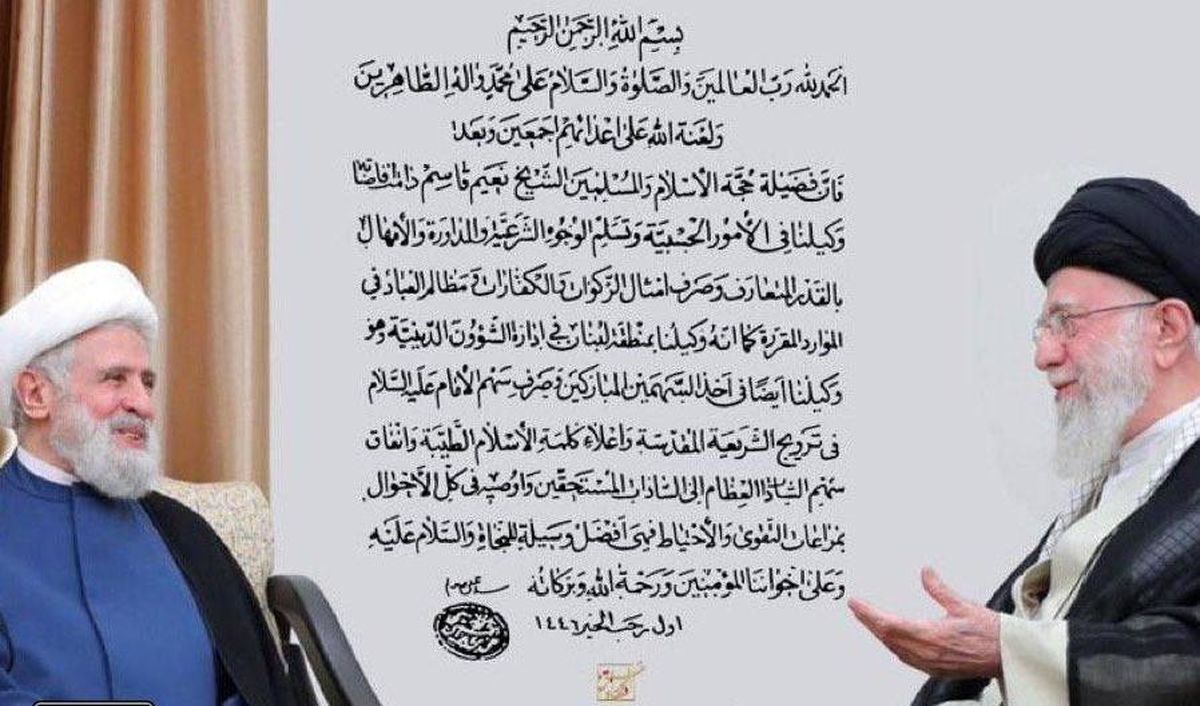 بِسْمِ اللهِ الرَّحْمٰنِ الرَّحِيْمِ
الحَمدُ لله رَبِّ العالمينَ وَالصَّلوٰةُ وَالسَّلامُ عَلىٰ مُحَمَّدٍ وَآلِهِ الطَّاهِرِينَ
وَلَعْنَةُ اللهِ عَلىٰ اَعْدائِهِم اَجمَعينَ وَبَعدُ
فَاِنَّ فَضيلَةَ حُجَّةِ الاِسْلامِ وَالمُسْلِمينَ الشَّيخِ نَعيم قاسِم دامَت اِفاضاتُه
وَكيلُنا في الأُمُورِ الحِسْبِيَّةِ وَتَسَلُّمِ الوُجُوهِ الشَّرعِيَّةِ وَالمُداوَرَةِ وَالأِمْهالِ
بِالقَدْرِ المُتَعارَفِ وَصَرفِ اَمثالِ الزَّكَواتِ وَالكَفّاراتِ وَمَظالِمِ العِبادِ في
المَوارِدِ المُقَرَّرَةِ كَما اَنَّهُ وَكيلُنا بِمِنطَقَةِ لُبنان في اِدارَةِ الشُّؤُونِ الدّينِيَّةِ وَهُوَ
وَكيلُنا اَيضًا في اَخذِ السَّهمَينِ المُبارَكَينِ وَصَرفِ سَهمِ الاِمامِ عَلَيهِ السَّلام
في تَرويجِ الشَّريعَةِ المُقَدَّسَةِ وَاِعلاءِ كَلِمَةِ الاِسْلامِ الطَّيِّبَةِ وَاِنفاقِ
سَهمِ السّاداتِ العِظامِ اِلى السّاداتِ المُستَحِقّينَ وَاُوصيهِ في كُلِّ الأَحْوالِ
بِمُراعاتِ التَّقوىٰ وَالأِحتِياطِ فَهِيَ اَفْضَلُ وَسيلَةٍ لِلنَّجاةِ وَالسَّلامُ عَلَيهِ
وَعَلىٰ اِخوانِنا المُؤمِنينَ وَرَحمَةُ اللهِ وَبَرَكاتُهُ
اول رجب الخير ١٤٤٦